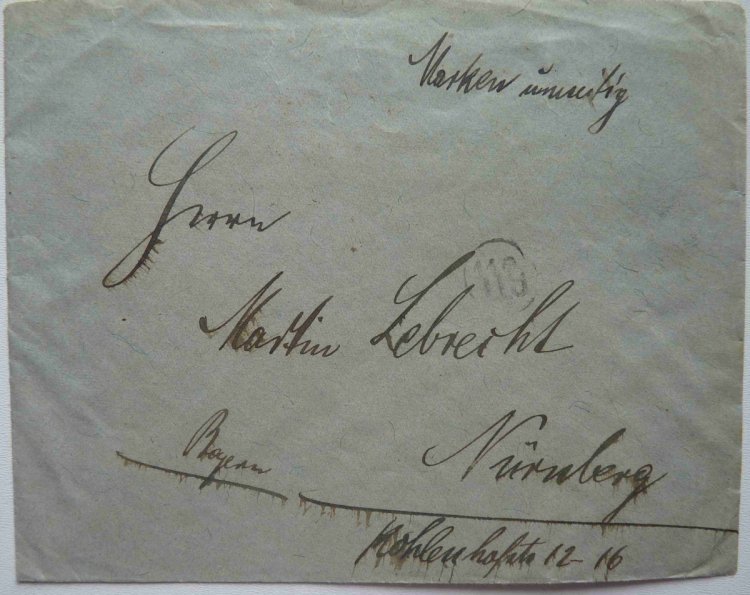 Marken umseitig
Herrn
119
Martin Lebrecht
Bayern
Nürnberg
Kohlenhofstr 12-16